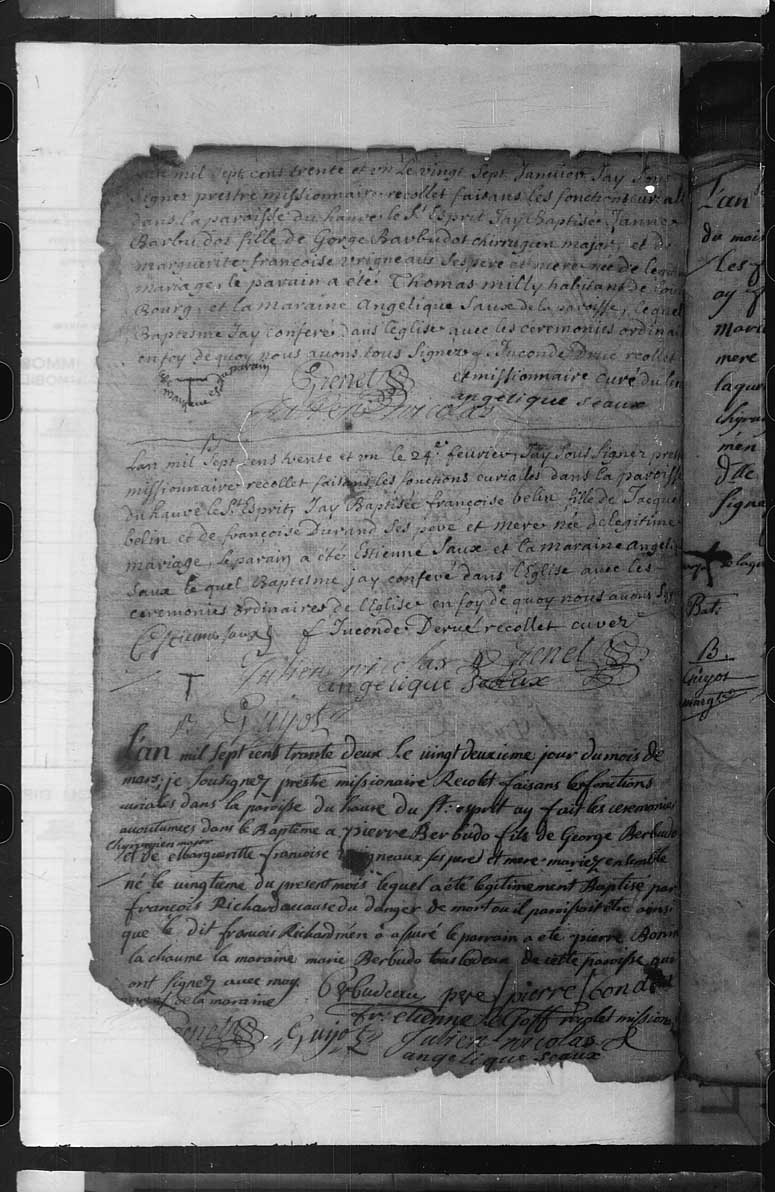 mil sept cens trente et un le vingt sept Janvier Jay Sous
Signer prestre missionnaire recollet faisans les fonctions curiall
dans la paroisse du havre le St. Esprit Jay Baptisée Janne
Barbudos fille de Gorge Barbudos chirrugien major, et de
marguerite francoise vrigneaus Ses pere et mere née de legi
mariage, le parain a été Thomas milly habitant de
Bourg, et la maraine Angelique Saux de la paroisse, lequel
Baptesme Jay conferé dans leglise avec les ceremonies ordinai
en foy de quoy nous avons tous Signer f. Juconde Drué recollet
et missionnaire curé du lieu
marque du parain
Grenet
angelique seaux
Julien nicolas
B
Lan mil Sept cens trente et un le 24.e fevrier, Jay Sous Signer prest
missionnaire recollet faisans les fonctions curialles dans la paroisse
du havre le St. Esprit, Jay Baptisée françoise belin fille de Jacque
belin et de françoise Durand Ses pere et mere née de legitime
mariage, le parain a été Estienne Saux et la maraine Angeli
Saux le quel Baptesme jay conferé dans l'Eglise avec les
ceremonies ordinaires de l'Eglise en foy de quoy nous avons Sig
Estienne Saux f Juconde Derué recollet curez
Julien nicolax Grenet
angelique Seaux
B Guyot
L'an mil sept cens trante deux le vingt deuxieme jour du mois de
mars, je Sousignez prestre missionaire Recolet faisans les fonctions
curiales dans la paroisse du havre du St. esprit ay fait les ceremonies
acoutumées dans le Baptême a pierre Berbudo fils de George Berbudo
chyrurgien major
et de Margueritte francoise vrigneaux ses pere et mere mariez ensemble
né le vingtieme du present mois lequel a été legitimement Baptisé par
francois Richard a cause du danger de mort ou il paroissoit être ainsi
que le dit francois Richard m'en a assuré le parrain a eté pierre Bonn
la chaume la maraine marie Berbudo tous deux de cette paroisse qui
ont signez avec moy
de la maraine
Berbudeau pre pierre
fr. etienne le Goff recolet mission
Grenet Guyot Julien nicolas
angelique seaux
L'an
du mois
les f
ay f
mari
mere
laque
chirur
men
dtte
signe
Bat.
B
Guyot